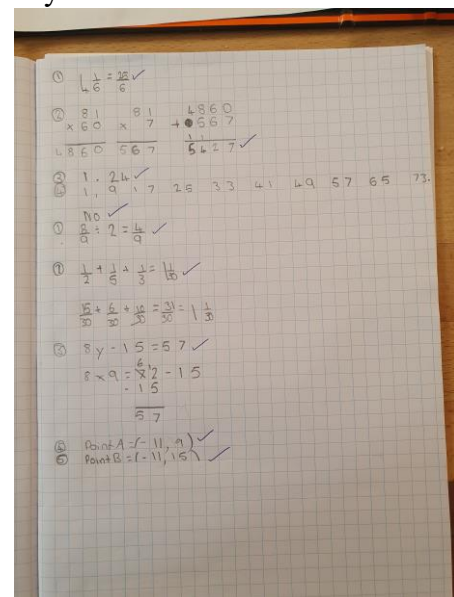 ① 4 1/6 = 25/6 ✓
② 81 81 4860
× 60 × 7 + 567
4860 567 5427 ✓
③ 1.24 ✓
④ 1, 9 17 25 33 41 49 57 65 73.
No ✓
① 8/9 ÷ 2 = 4/9 ✓
② 1/2 + 1/5 + 1/3 = 1 1/30 ✓
15/30 + 6/30 + 10/30 = 31/30 = 1 1/30
③ 8y - 15 = 57 ✓
8 × 9 = 72 - 15
- 15
57
④ Point A = (- 11, 9) ✓
⑤ Point B = (- 11, 15) ✓